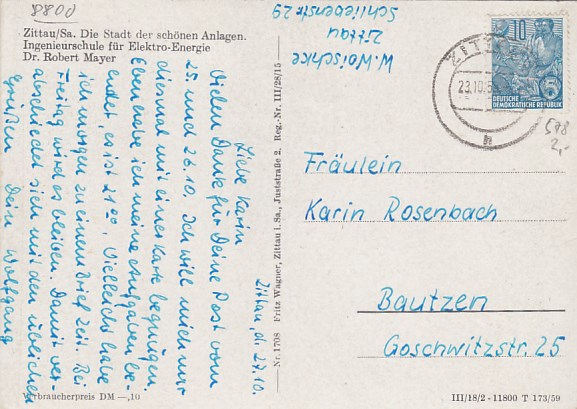 8800
Zittau/Sa. Die Stadt der schönen Anlagen.
Ingenieurschule für Elektro-Energie
Dr. Robert Mayer
Zittau, d. 27.10.
Liebe Karin
Vielen Dank für Deine Post vom
25. und 26.10. Ich will mich nur
diesmal mit einer Karte begnügen.
Eben habe ich meine Aufgaben be-
endet, es ist 21°°. Vielleicht habe
ich morgen zu einem Brief Zeit. Bei
Freitag wird es bleiben. Damit ver-
abschiedet sich mit den üblichen
Grüßen Dein Wolfgang
Verbraucherpreis DM —,10
Nr. 1708 Fritz Wagner, Zittau i. Sa., Juststraße 2, Reg.-Nr. III/28/15
W. Woischke
Zittau
Schliebenstr 29
10
5
DEUTSCHE
DEMOKRATISCHE REPUBLIK
578
2,-
Fräulein
Karin Rosenbach
Bautzen
Goschwitzstr. 25
III/18/2 - 11800 T 173/59